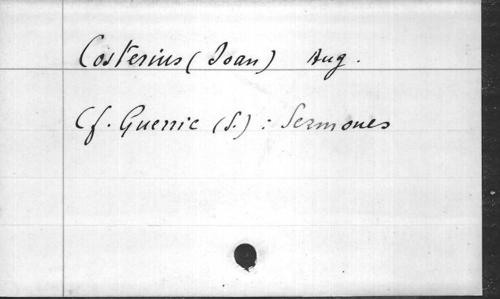 Costerius (Joan) Aug.
Cf. Guerric (S.) : Sermones